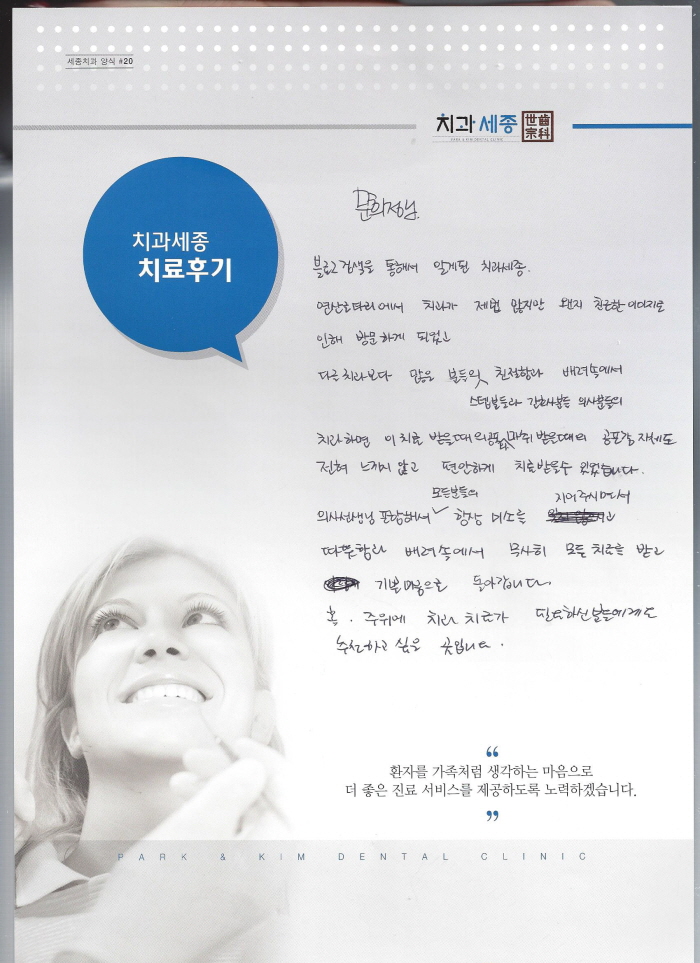 세종치과 양식 #20
치과세종 世宗齒科
PARK & KIM DENTAL CLINIC
치과세종
치료후기
문희정님.
블로그 검색을 통해서 알게된 치과세종.
연산로타리에서 치과가 제법 많지만 왠지 친근한 이미지로
인해 방문하게 되었고
다른 치과보다 많은 분들의 친절함과 배려속에서
스텝분들과 간호사분들 의사분들의
치과하면 이 치료 받을때의 공포 마취 받을때의 공포감 자체도
전혀 느끼지 않고 편안하게 치료받을수 있었습니다.
모든분들이 지어주시면서
의사선생님 포함해서 항상 미소를
따뜻함과 배려속에서 무사히 모든 치료를 받고
기쁜 마음으로 돌아갑니다.
혹. 주위에 치과 치료가 필요하신분들에게도
추천하고 싶은 곳입니다.
“
환자를 가족처럼 생각하는 마음으로
더 좋은 진료 서비스를 제공하도록 노력하겠습니다.
”
PARK & KIM DENTAL CLINIC